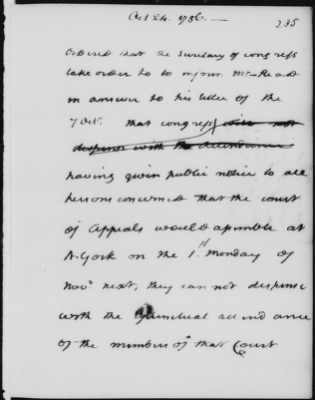 Oct 24. 1786.
235
Ordered that the Secretary of congress
take order to inform Mr Read
in answer to his letter of the
7 Oct. that congress will not
dispense with the attendance
having given public notice to all
persons concerned that the court
of Appeals would assemble at
N. York on the 1st Monday of
Novr next, they can not dispense
with the punctual attendance
of the members of that Court